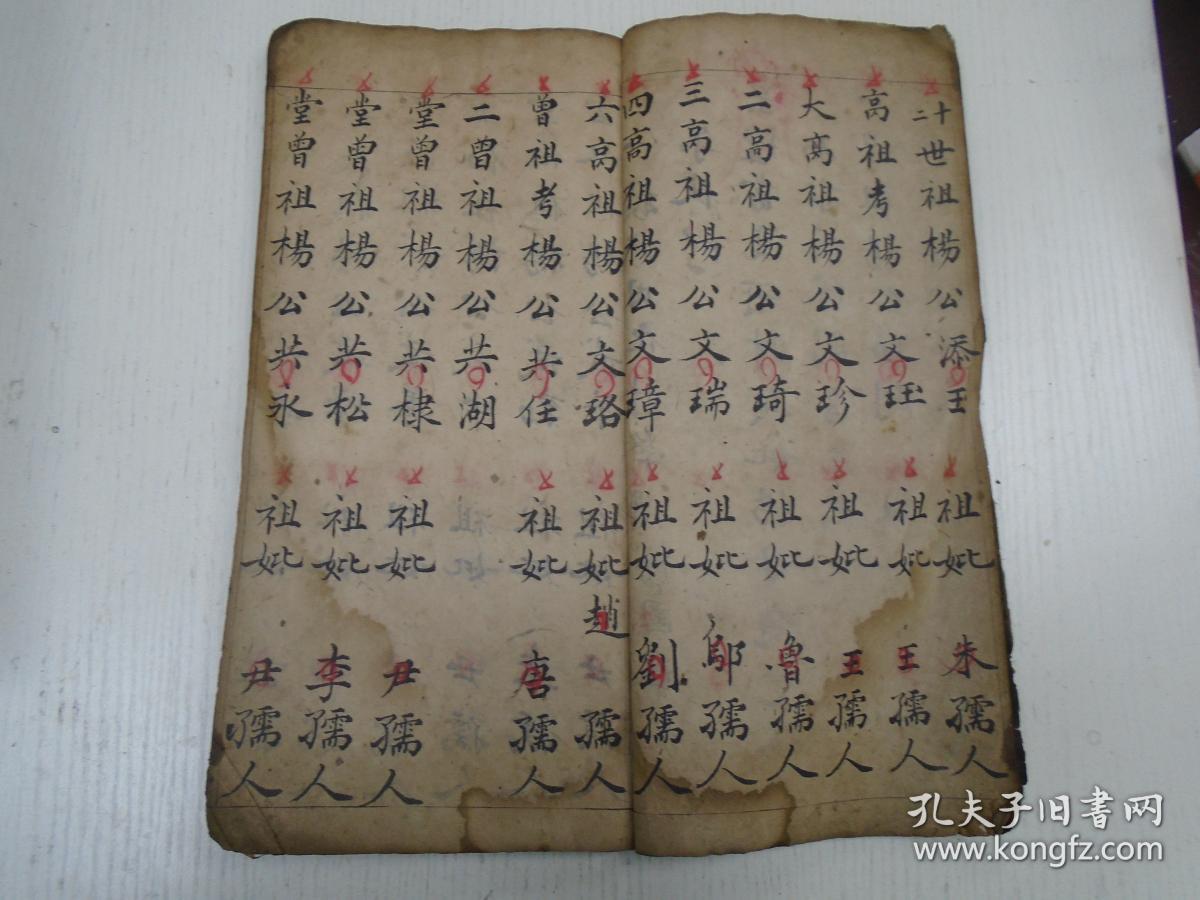 十二世祖楊公添王 祖妣朱孺人
高祖考楊公文珏 祖妣王孺人
大高祖楊公文珍 祖妣王孺人
二高祖楊公文琦 祖妣魯孺人
三高祖楊公文瑞 祖妣鄔孺人
四高祖楊公文璋 祖妣劉孺人
六高祖楊公文珞 祖妣趙孺人
曾祖考楊公共任 祖妣唐孺人
二曾祖楊公共湖
堂曾祖楊公共棣 祖妣尹孺人
堂曾祖楊公共松 祖妣李孺人
堂曾祖楊公共永 祖妣尹孺人
孔夫子旧书网
www.kongfz.com